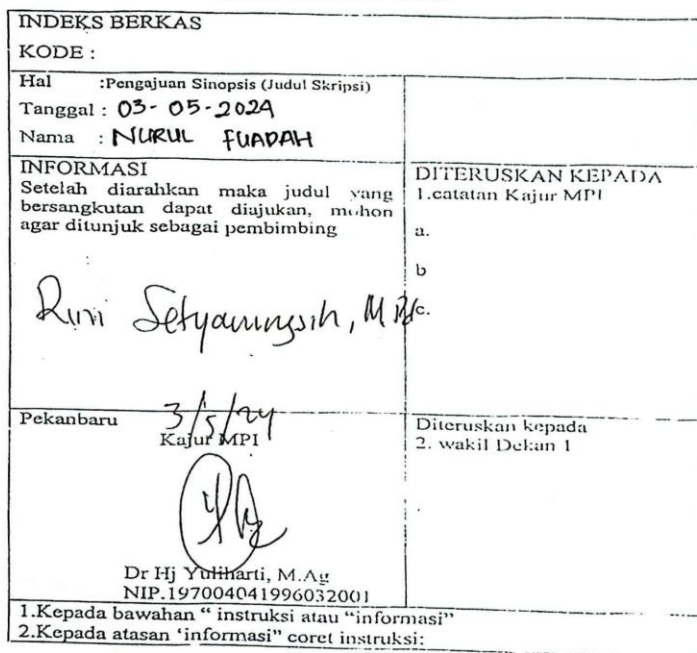 INDEKS BERKAS
KODE :
Hal :Pengajuan Sinopsis (Judul Skripsi)
Tanggal : 03-05-2024
Nama : NURUL FUADAH
INFORMASI
Setelah diarahkan maka judul yang
bersangkutan dapat diajukan, mohon
agar ditunjuk sebagai pembimbing
Rini Setyaningsih, M.Pd
DITERUSKAN KEPADA
1.catatan Kajur MPI
a.
b
c.
Pekanbaru 3/5/24
Kajur MPI
Dr Hj Yuliharti, M.Ag
NIP.197004041996032001
Diteruskan kepada
2. wakil Dekan 1
1.Kepada bawahan “ instruksi atau “informasi”
2.Kepada atasan ‘informasi” coret instruksi: